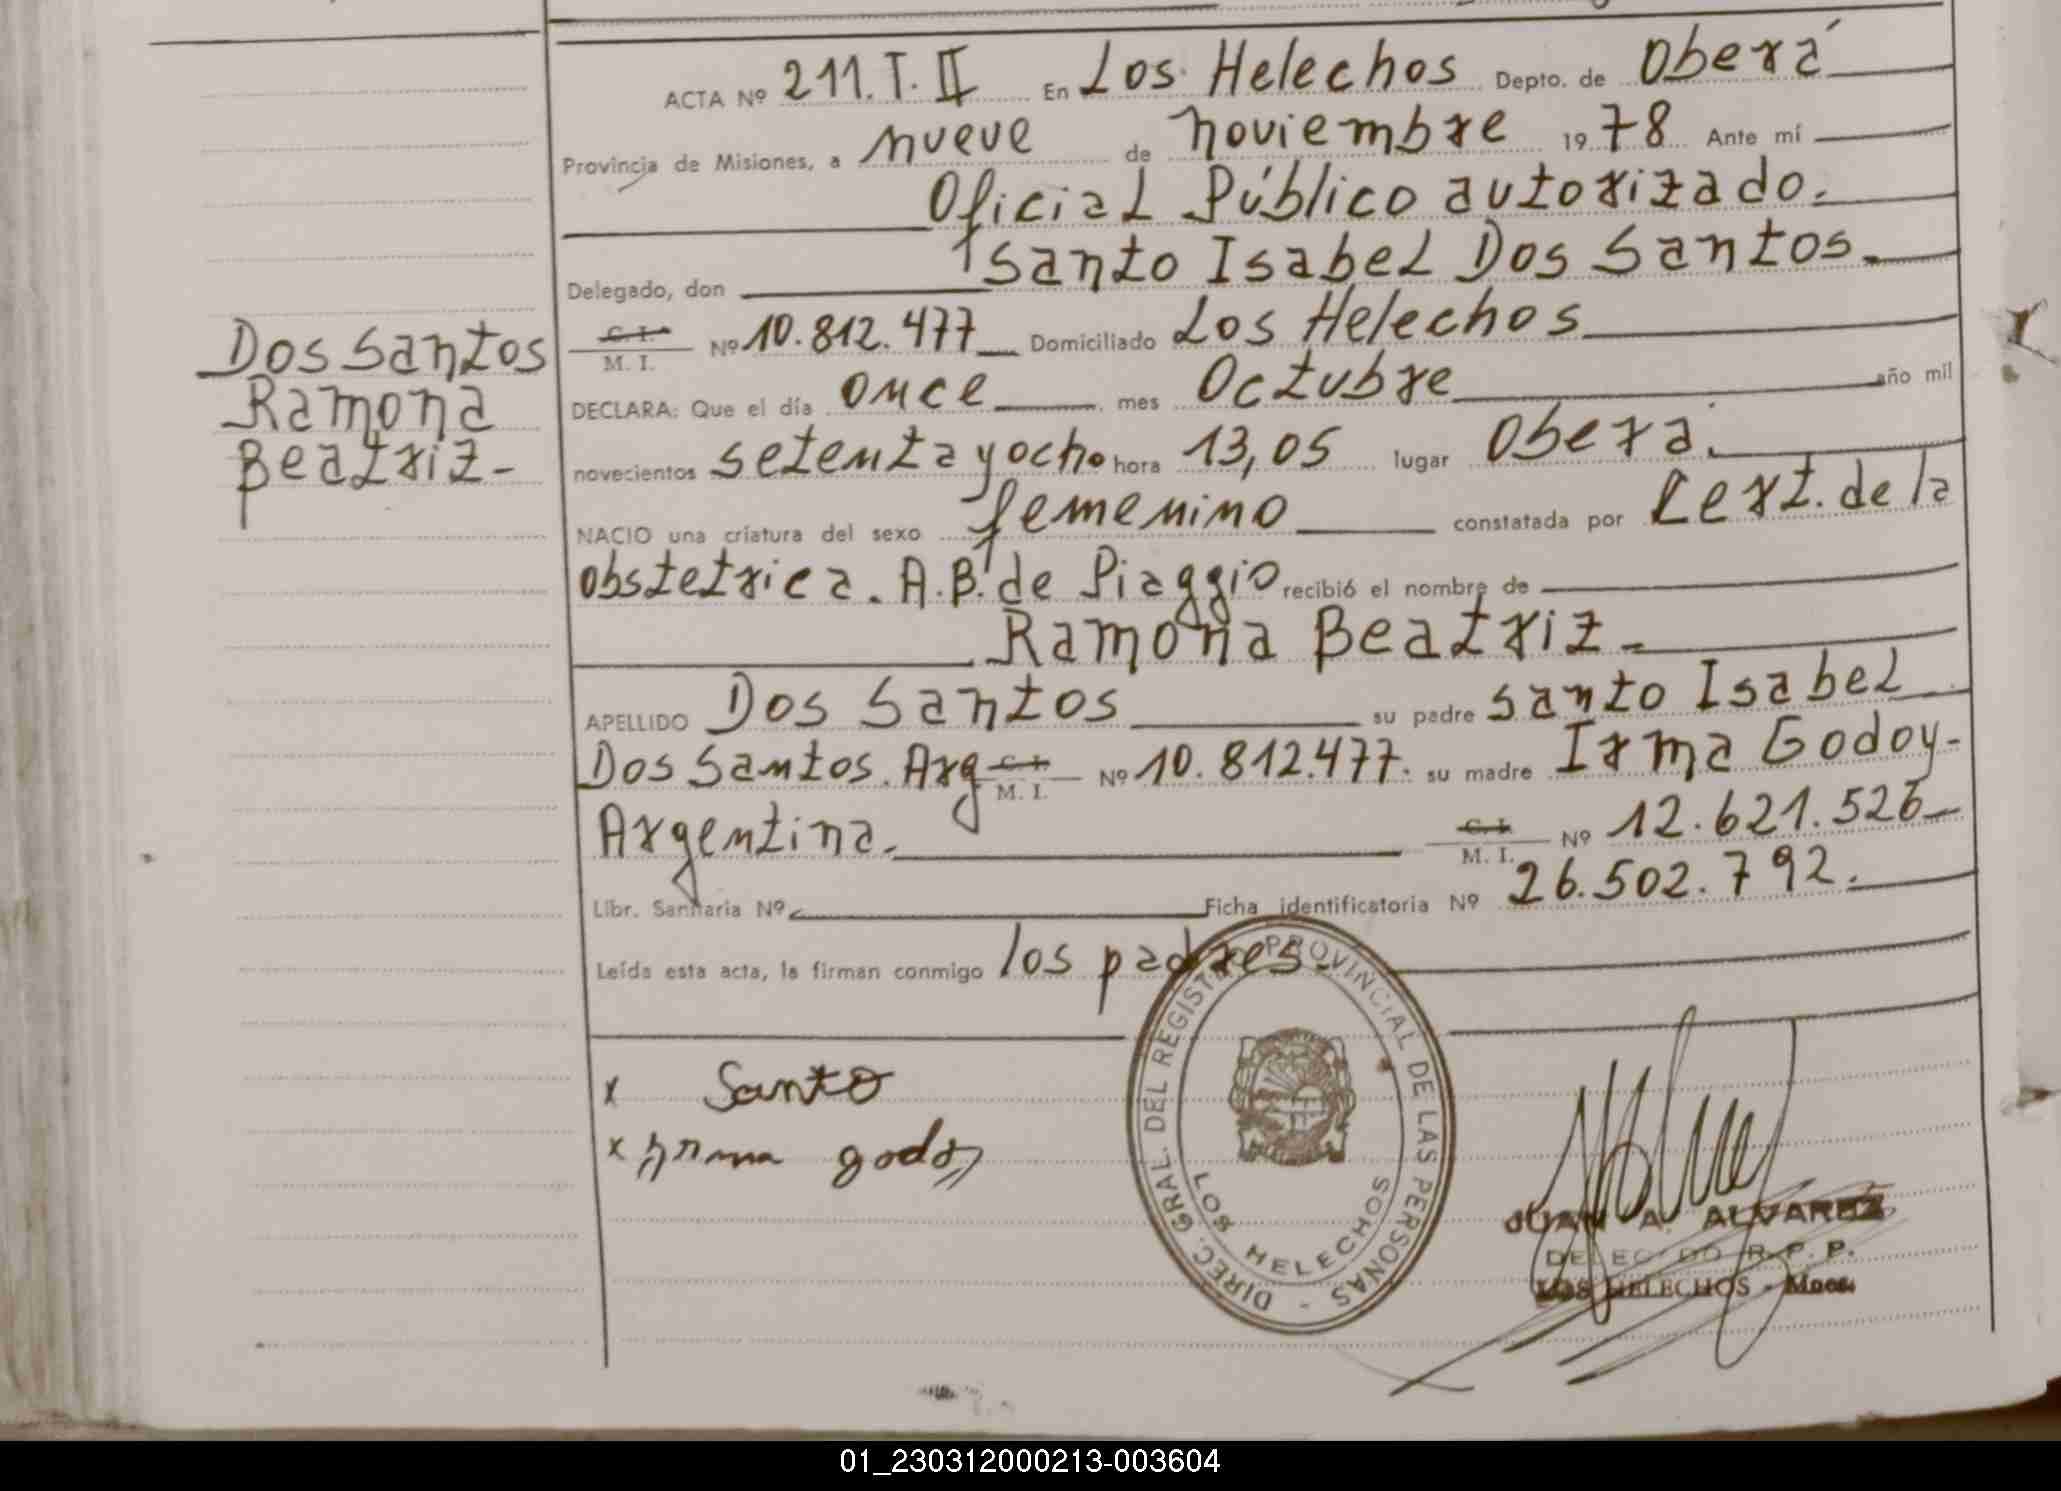 ACTA Nº 211.T.II En Los Helechos Depto. de Oberá
Provincia de Misiones, a nueve de noviembre 19 78 Ante mí
Oficial Público autorizado.
Delegado, don Santo Isabel Dos Santos.
C. I. M. I. Nº 10.812.477 Domiciliado Los Helechos
Dos Santos
Ramona
Beatriz-
DECLARA: Que el día once mes Octubre año mil
novecientos setenta y ocho hora 13,05 lugar Oberá.
NACIO una criatura del sexo femenino constatada por Cert. de la
obstetrica. A.B. de Piaggio recibió el nombre de
Ramona Beatriz-
APELLIDO Dos Santos su padre Santo Isabel
Dos Santos. Arg C. I. M. I. Nº 10.812.477. su madre Irma Godoy-
Argentina. C. I. M. I. Nº 12.621.526
Libr. Sanitaria Nº Ficha identificatoria Nº 26.502.792.
Leída esta acta, la firman conmigo los padres.
x Santo
x Irma godoy
DIREC. GRAL. DEL REGISTRO PROVINCIAL DE LAS PERSONAS -
LOS HELECHOS
JUAN A. ALVAREZ
DELEGADO R. P. P.
LOS HELECHOS - Mnes.
01_230312000213-003604